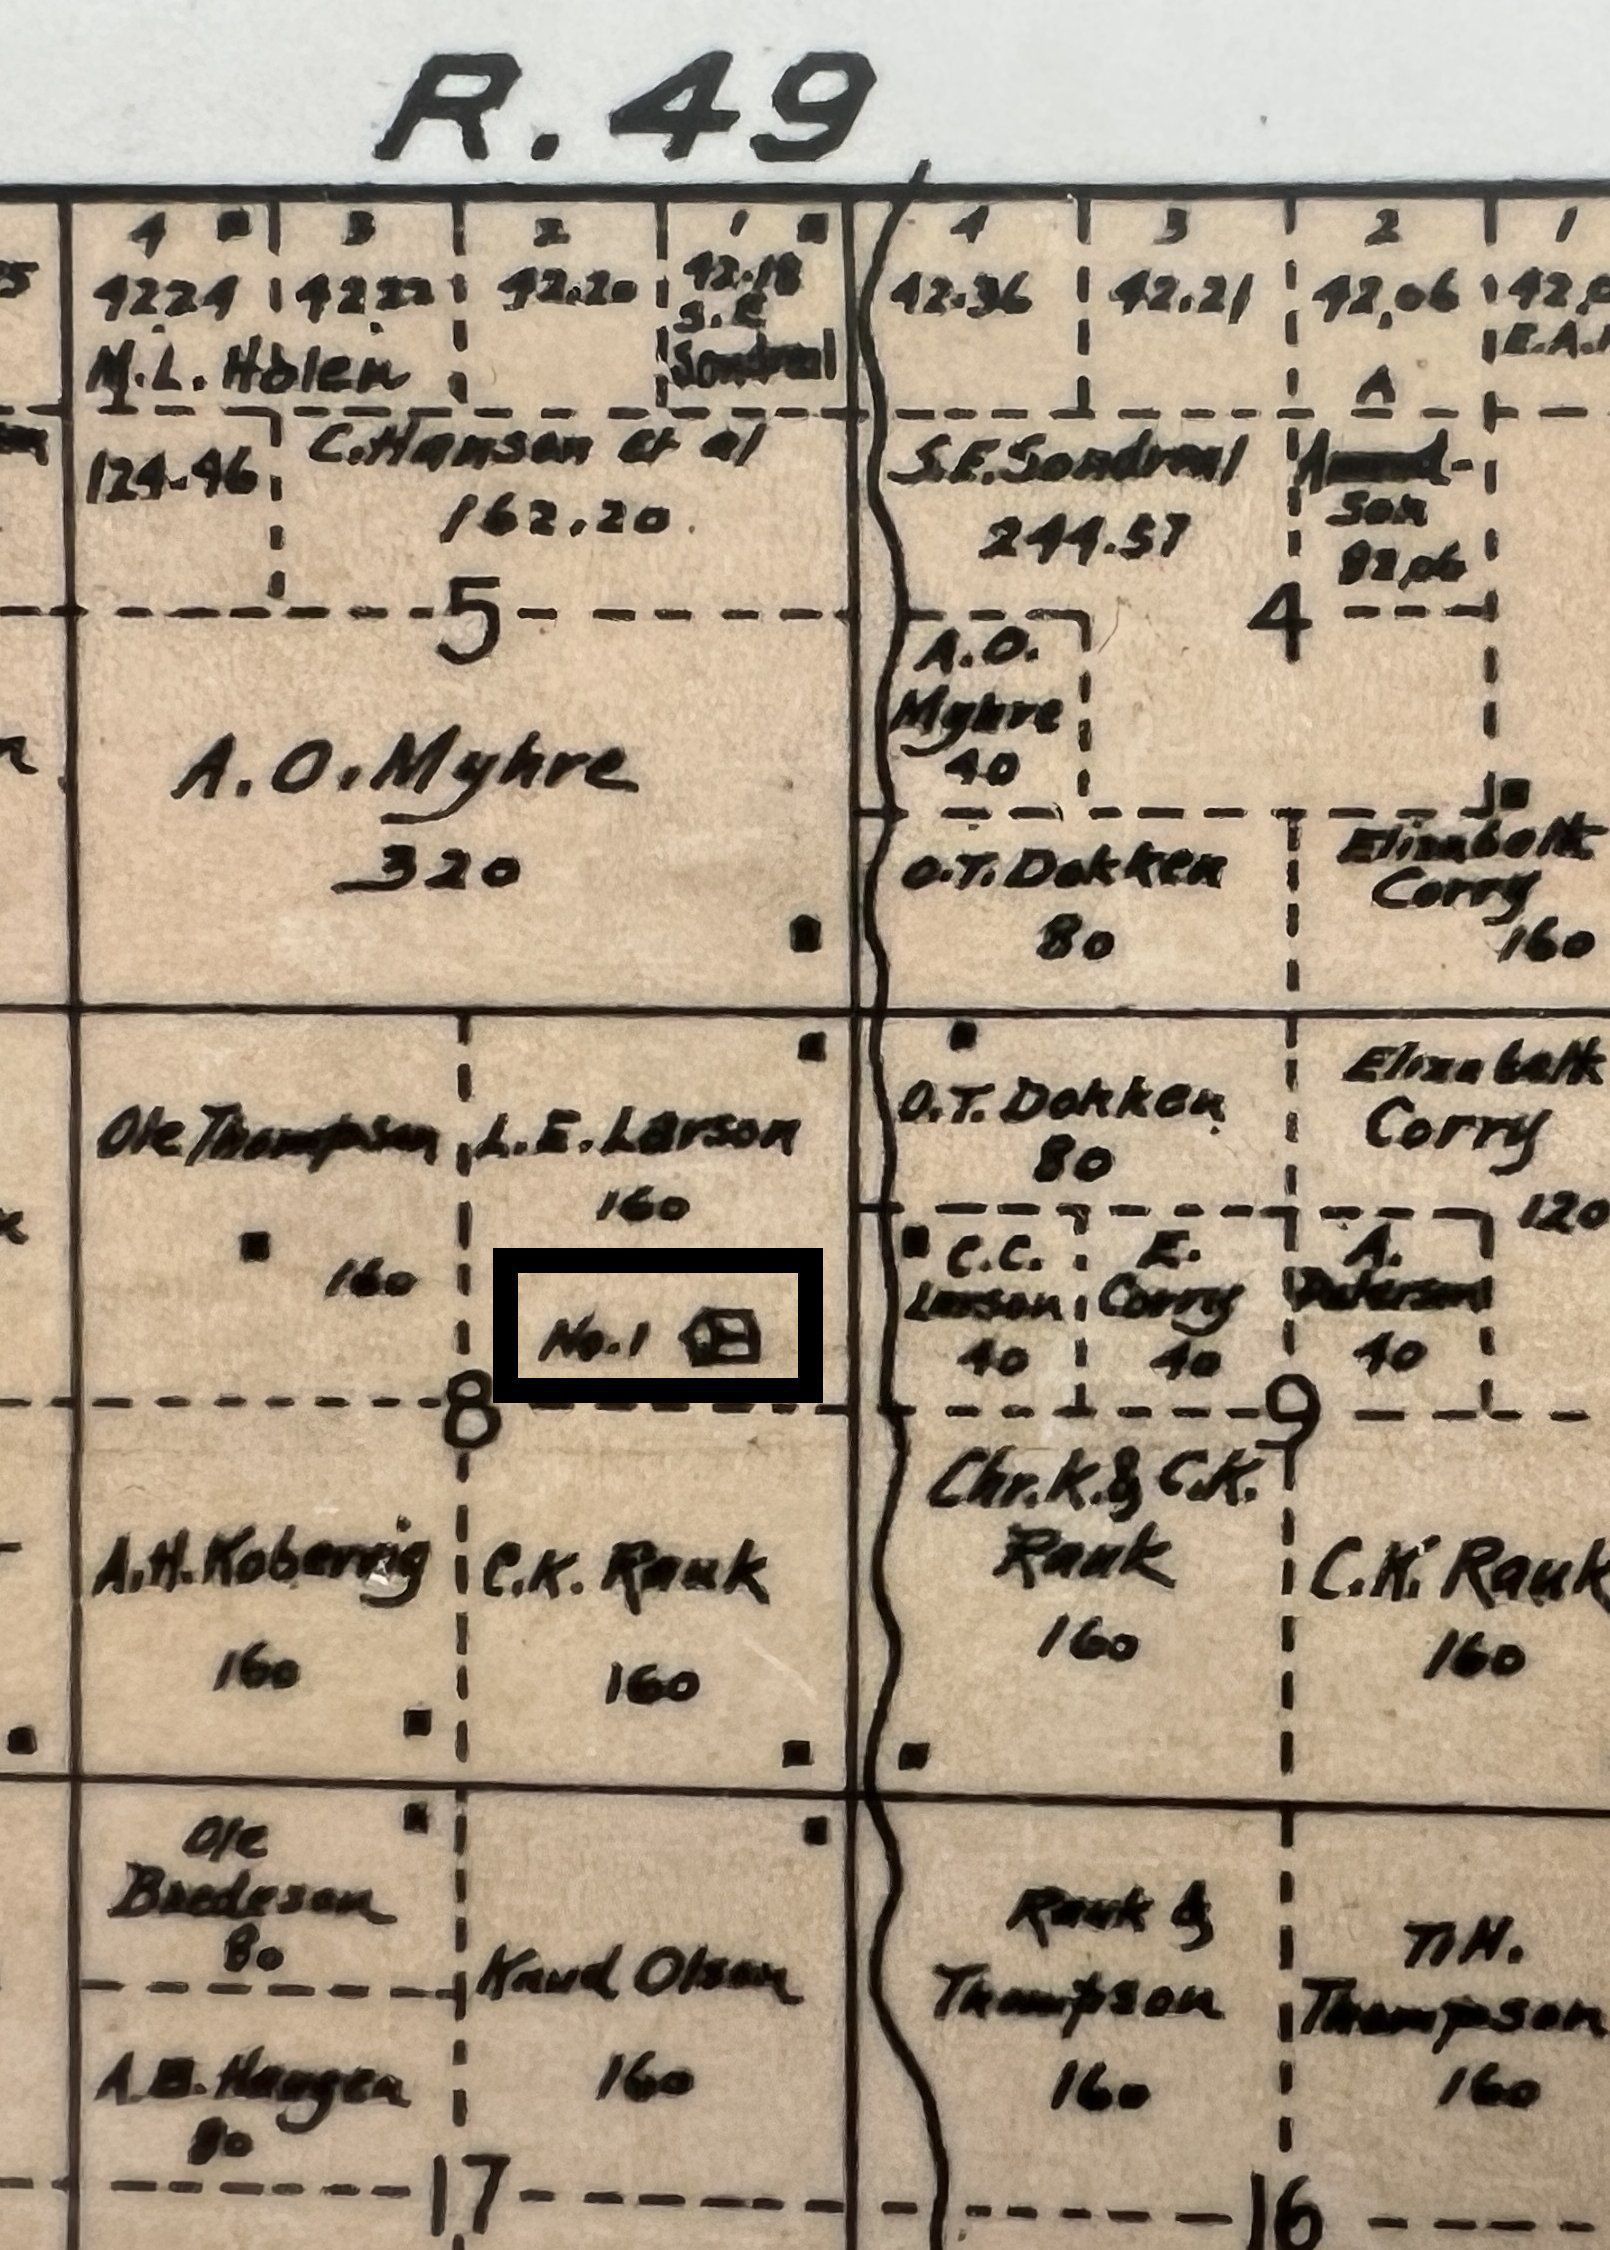 R. 49
4 3 2 1 4 3 2 1
42.24 42.22 42.20 42.18 42.36 42.21 42.06
S.E.
Sondreal
M.L. Holen
A
C. Hanson et al
124.46
162.20
S.E. Sondreal
244.57
son
82.06
5 4
A.O.
Myhre
40
A.O. Myhre
320
O.T. Dokken
80
Elizabeth
Corry
160
Ole Thompson
160
L.E. Larson
160
No. 1
O.T. Dokken
80
Elizabeth
Corry
120
C.C.
Larson
40
E.
Corry
40
A.
Peterson
40
8 9
A.H. Kobervig
160
C.K. Rauk
160
Chr. K. & C.K.
Rauk
160
C.K. Rauk
160
Ole
Bredeson
80
Knud Olson
160
Rauk &
Thompson
160
T.H.
Thompson
160
A.B. Haugen
80
17 16